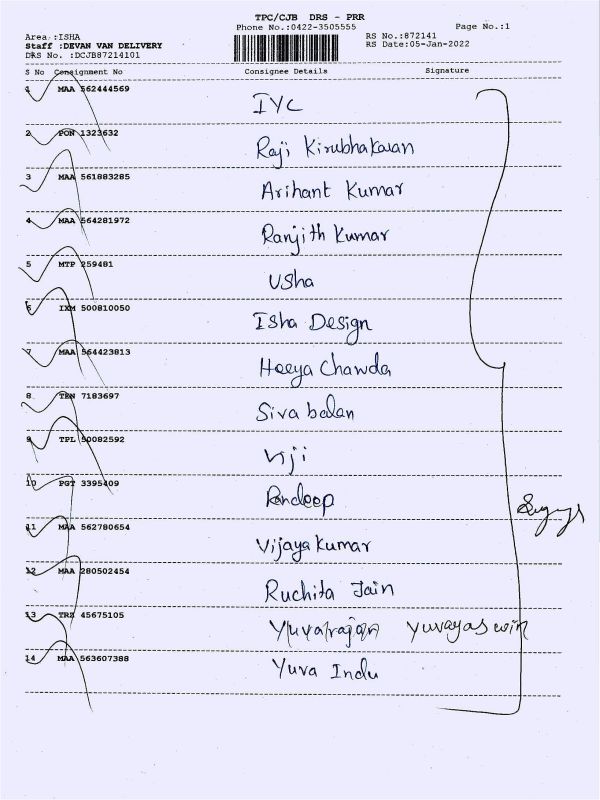 TPC/CJB DRS - PRR
Phone No.:0422-3505555 Page No.:1
Area :ISHA RS No.:872141
Staff :DEVAN VAN DELIVERY RS Date:05-Jan-2022
DRS No. :DCJB87214101
S No Consignment No Consignee Details Signature
1 MAA 562444569 IYC
2 PON 1323632 Raji Kirubhakaran
3 MAA 561883285 Arihant Kumar
4 MAA 564281972 Ranjith Kumar
5 MTP 259481 Usha
6 IXM 500810050 Isha Design
7 MAA 564423813 Heeya Chawda
8 TEN 7183697 Siva balan
9 TPL 50082592 Viji
10 PGT 3395409 Pandeep
11 MAA 562780654 Vijaya Kumar
12 MAA 280502454 Ruchita Jain
13 TRZ 45675105 Yuvarajan Yuvayaswin
14 MAA 563607388 Yuva Indu